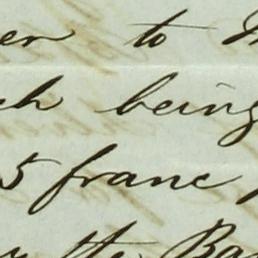 er to
ch being
5 franc
the Ba